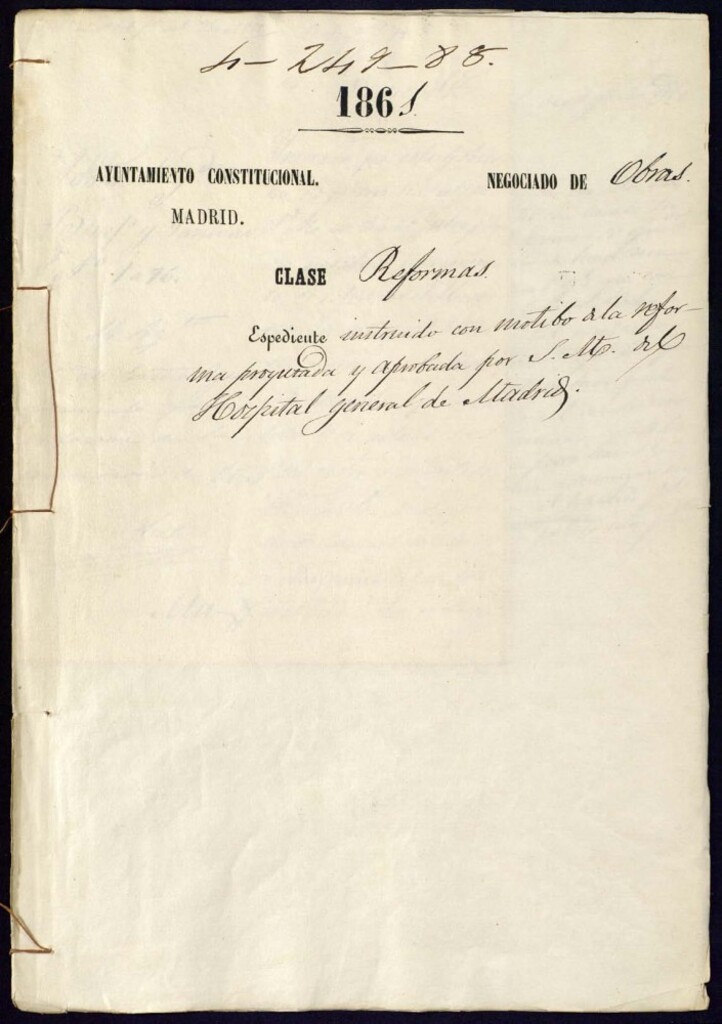 4-249-88.
1861
AYUNTAMIENTO CONSTITUCIONAL. NEGOCIADO DE Obras.
MADRID.
CLASE Reformas.
Espediente instruido con motibo de la refor-
ma proyectada y aprobada por S. M. del
Hospital general de Madrid.